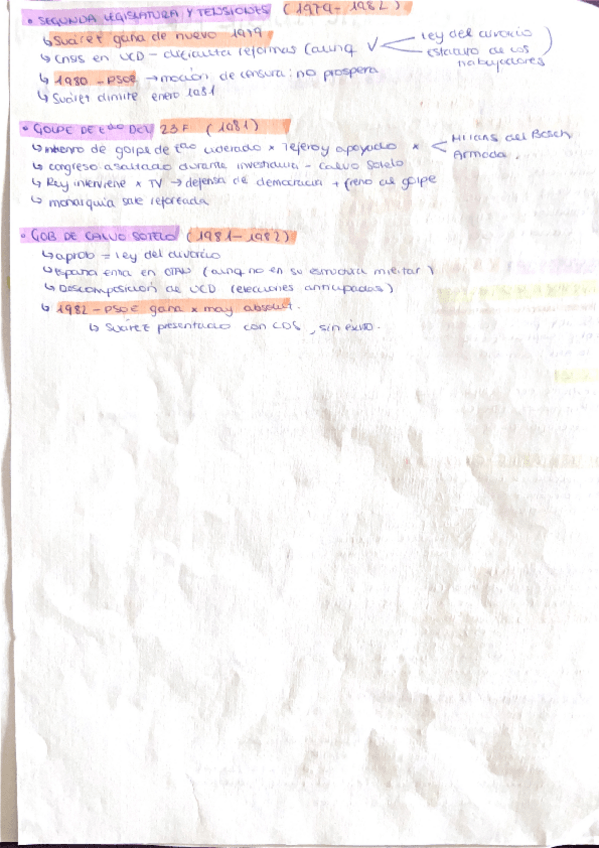 • SEGUNDA LEGISLATURA Y TENSIONES (1979-1982)
↳ Suárez gana de nuevo 1979
↳ Crisis en UCD - dificulta reformas (aunq V < Ley del divorcio
Estatuto de los trabajadores)
↳ 1980 - PSOE → moción de censura: no prospera
↳ Suárez dimite enero 1981
• GOLPE DE Eᵃᵈᵒ DEL 23F (1981)
↳ intento de golpe de Eᵃᵈᵒ liderado x Tejero y apoyado x < Milans del Bosch
Armada.
↳ congreso asaltado durante investidura - Calvo Sotelo
↳ Rey interviene x TV → defensa de democracia + freno al golpe
↳ monarquía sale reforzada
• GOB DE CALVO SOTELO (1981-1982)
↳ aprob = ley del divorcio
↳ España entra en OTAN (aunq no en su estructura militar)
↳ Descomposición de UCD (elecciones anticipadas)
↳ 1982 - PSOE gana x may absolut.
↳ Suárez presentado con CDS, sin éxito.